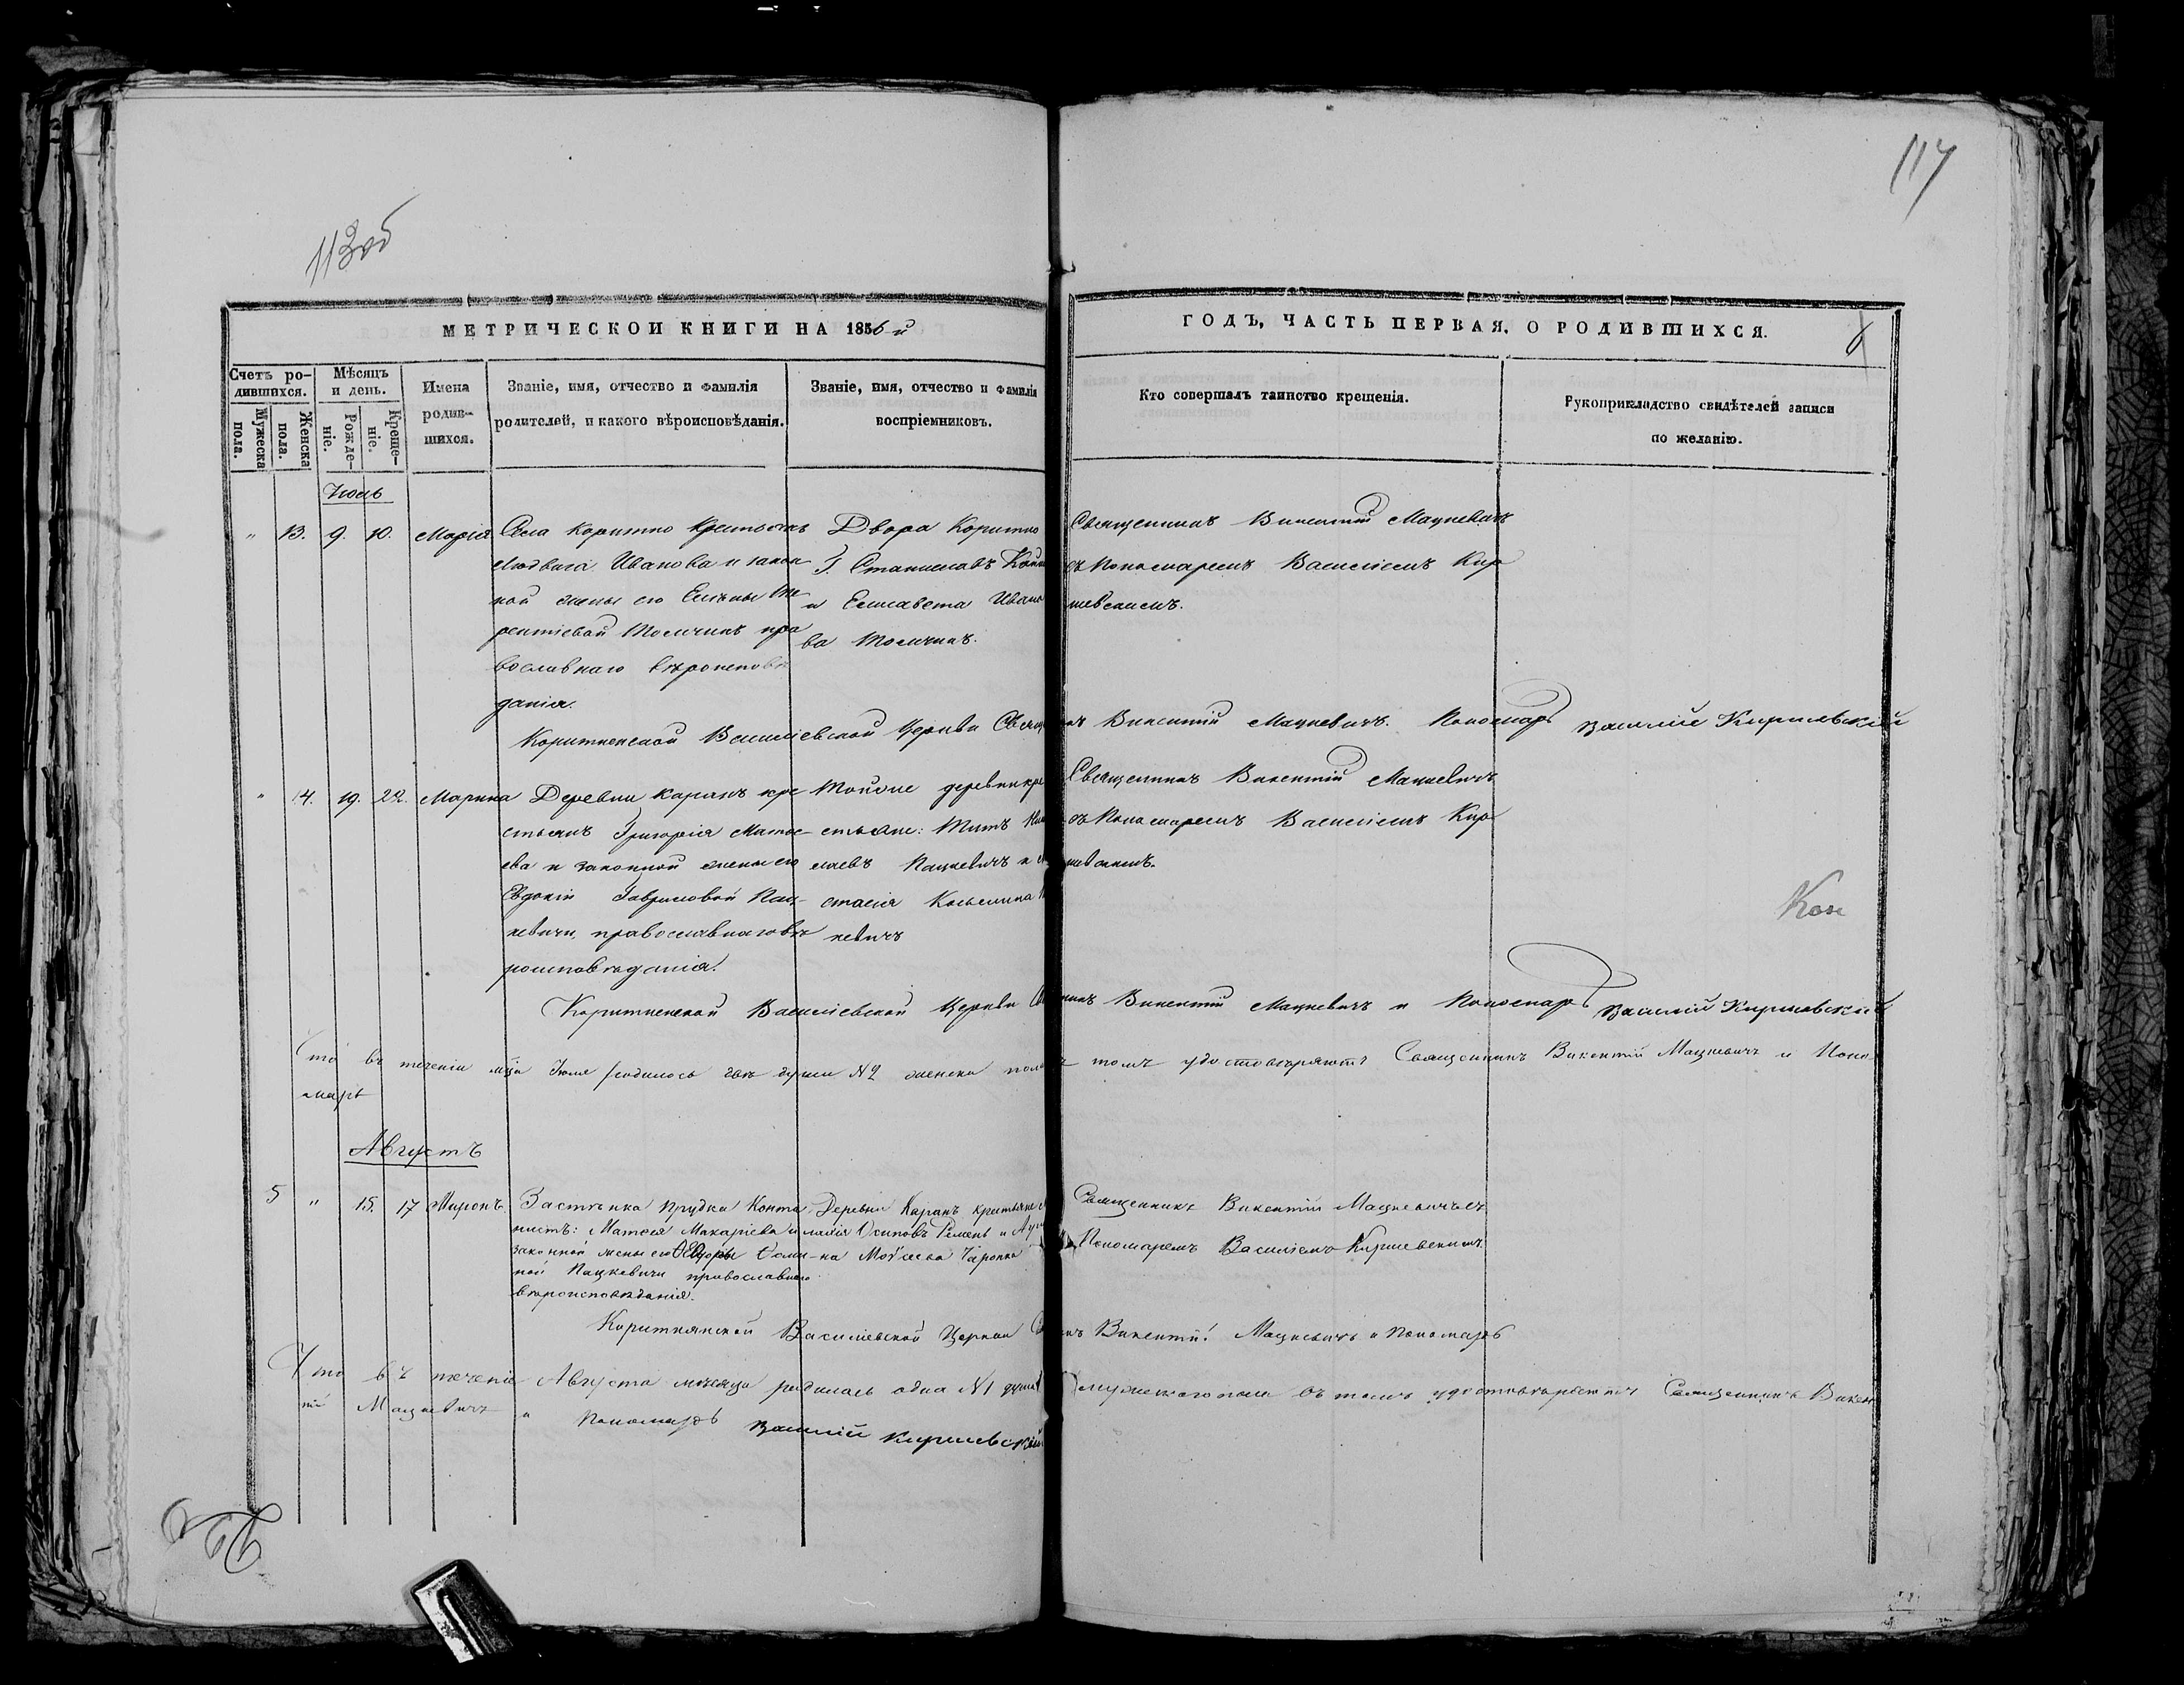 113об
117
МЕТРИЧЕСКОЙ КНИГИ НА 1856-й
ГОДЪ, ЧАСТЬ ПЕРВАЯ, О РОДИВШИХСЯ.
6
Счетъ ро-
дившихся.
Мужеска пола.
Женска пола.
Мѣсяцъ
и день.
Рожде-
ніе.
Креще-
ніе.
Имена
родив-
шихся.
Званіе, имя, отчество и фамилія
родителей, и какого вѣроисповѣданія.
Званіе, имя, отчество и фамилія
воспріемниковъ.
Кто совершалъ таинство крещенія.
Рукоприкладство свидѣтелей записи
по желанію.
Іюль
" 13. 9. 10. Марія
Села Коритно крестьянъ
Людвига Иванова и закон
ной жены его Елены
рентіевой Толичинъ пра
вославнаго вѣроисповѣ
данія.
Двора Коритно
Г. Станиславъ
и Елисавета Ивано
ва Толичинъ.
Священникъ Викентій Мацкевичъ
съ Пономаремъ Василіемъ Кир
шевскимъ.
Коритненской Василіевской Церкви Священ
къ Викентій Мацкевичъ. Пономарь Василій Киршевскій
" 14. 19. 22. Марина
Деревни Каранъ кре
стьянъ Григорія Матѳе
ева и законной жены его
Евдокіи Гавриловой Пац-
кевичи, православнаго вѣ
роисповѣданія.
Тойоже деревни кре
стьяне: Титъ
лаевъ Пацкевичъ и
стасія Косьмина
кевичъ
Священникъ Викентій Мацкевичъ
съ Пономаремъ Василіемъ Кир
шевскимъ.
Кон
Коритненской Василіевской Церкви
никъ Викентій Мацкевичъ и Пономарь Василій Киршевскій
Что въ теченіи мца Іюля родилось двѣ души № 2 женска пола
томъ удостовѣряютъ Священникъ Викентій Мацкевичъ и Поно
марь
Августъ
5 " 15. 17 Миронъ.
Застѣнка Прудка Конто
нистъ: Матѳея Макаріева и
законной жены его Ѳеодоры Осми-
ной Пацкевичи православнаго
вѣроисповѣданія.
Деревни Каранъ крестьяне
Осиповъ Ремень и
на Моѵсеева Чаропка
Священникъ Викентій Мацкевичъ съ
Пономаремъ Василіемъ Киршевскимъ.
Коритнянской Василіевской Церкви
къ Викентій Мацкевичъ и Пономарь
Что въ теченіе Августа месяца родилась одна № 1 душа
мужескаго пола въ томъ удостовѣряютъ Священникъ Викен
тій Мацкевичъ и Пономарь Василій Киршевскій